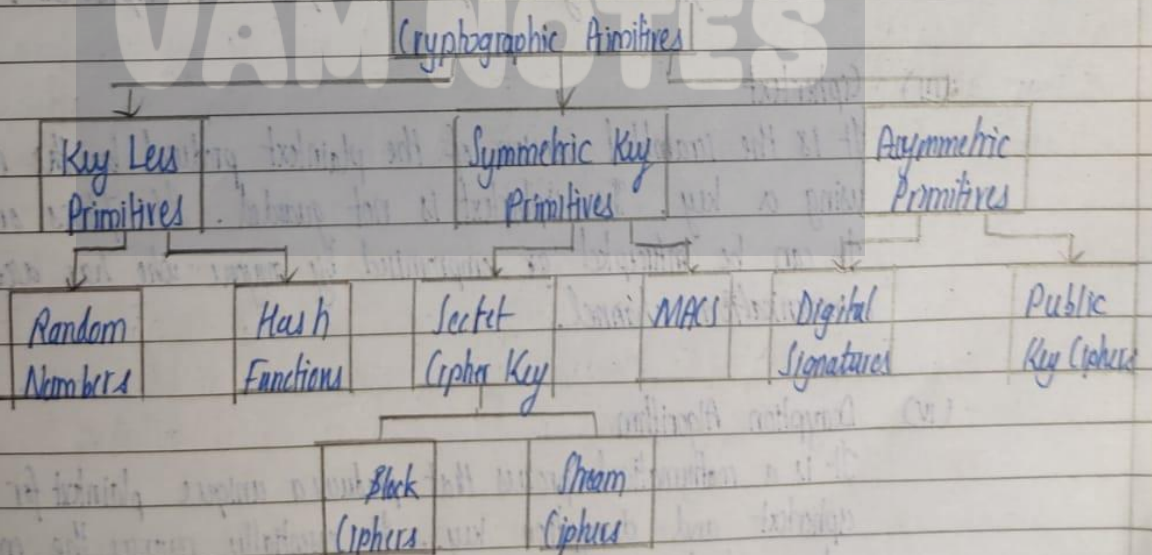 VAM NOTES
Cryptographic Primitives
Key Less
Primitives
Symmetric Key
Primitives
Asymmetric
Primitives
Random
Numbers
Hash
Functions
Secret
Cipher Key
MACs
Digital
Signatures
Public
Key Ciphers
Block
Ciphers
Stream
Ciphers